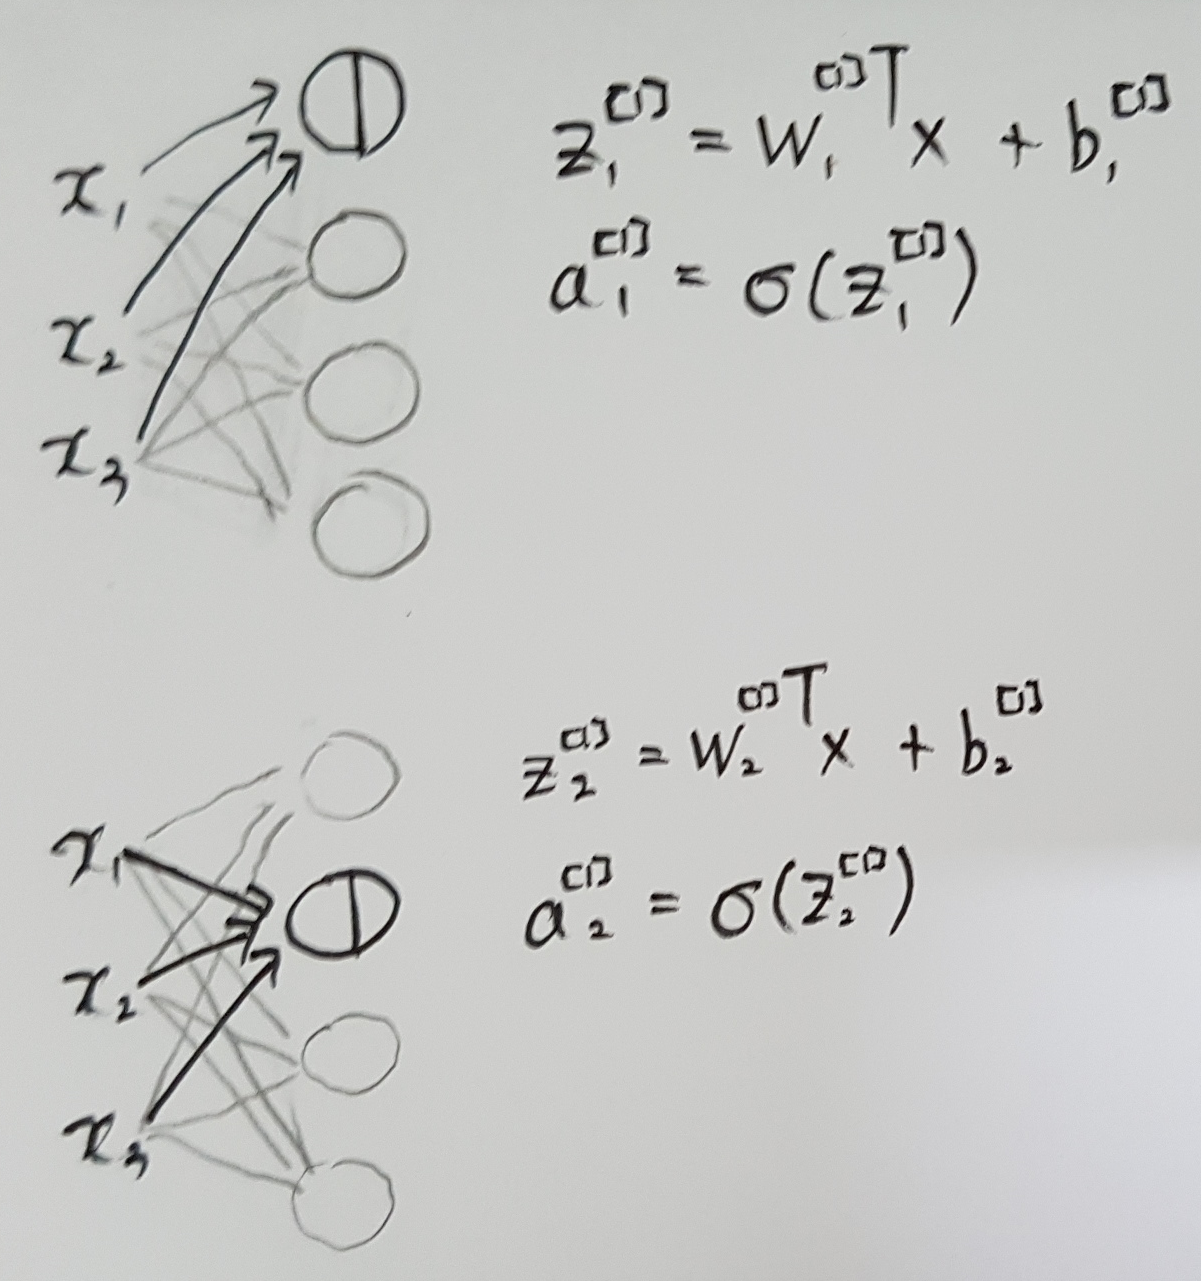 x₁
x₂
x₃
z₁^[1] = W₁^[1]T x + b₁^[1]
a₁^[1] = σ(z₁^[1])
x₁
x₂
x₃
z₂^[1] = W₂^[1]T x + b₂^[1]
a₂^[1] = σ(z₂^[1])